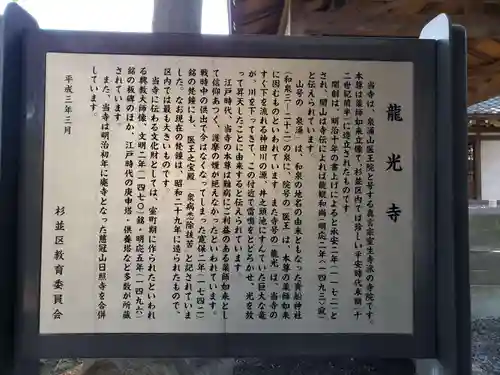 龍光寺
当寺は、泉涌山医王院と号する真言宗室生寺派の寺院です。
本尊は薬師如来立像で、杉並区内では珍しい平安時代末期（十
二世紀前半）に造立されたものです。
開創は、明治十年の書上げによると承安二年（一一七二）と
され、開山は寺伝によれば龍範和尚（明応二年（一四九三）寂）
と伝えられています。
山号の「泉涌」は、和泉の地名の由来ともなった貴船神社
（和泉三―二十一）の泉に、院号の「医王」は、本尊の薬師如来
に因むものといわれています。また寺号の「龍光」は、当寺の
すぐ下を流れる神田川の源、井之頭池にすんでいた巨大な竜
が、川を下ってきて、この付近で雷鳴をとどろかせ、光を放
って昇天したことに由来すると伝えられています。
江戸時代、当寺の本尊は難病にご利益のある薬師如来とし
て信仰あつく、護摩の煙が絶えなかったといわれています。
戦時中の供出で今はなくなってしまった寛保二年（一七四二）
銘の梵鐘にも、「医王之宝殿」「衆病悉除抜苦」と記されていま
した。なお現在の梵鐘は、昭和二十九年に造られたもので、
区内では最も大きいものです。
当寺に伝わる文化財としては、室町期に作られたといわれ
る興教大師像、文明二年（一四七〇）銘・明応五年（一四九六）
銘の板碑のほか、江戸時代の庚申塔・供養塔など多数が所蔵
されています。
また、当寺は明治初年に廃寺となった慈冠山日照寺を合併
しています。
平成三年三月
杉並区教育委員会